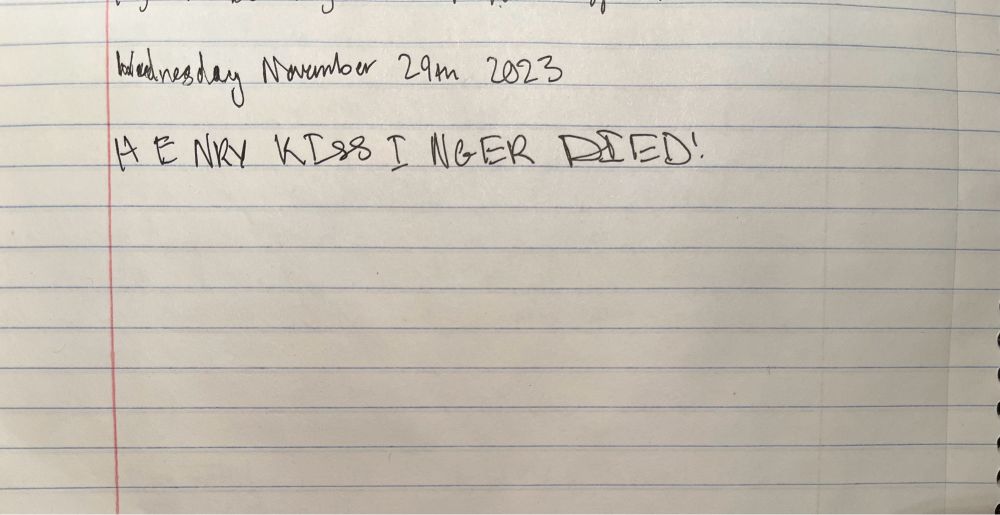 Wednesday November 29th 2023
HENRY KISSINGER DIED!